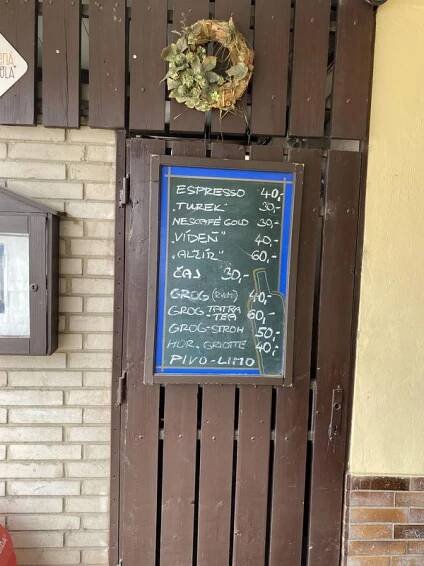 ESPRESSO 40,-
„TUREK" 30,-
NESCAFÉ GOLD 30,-
„VÍDEŇ" 40,-
„ALŽÍR" 60,-
ČAJ 30,-
GROG (RUM) 40,-
GROG TATRA TEA 60,-
GROG-STROH 50,-
HOR. GRIOTTE 40,-
PIVO-LIMO